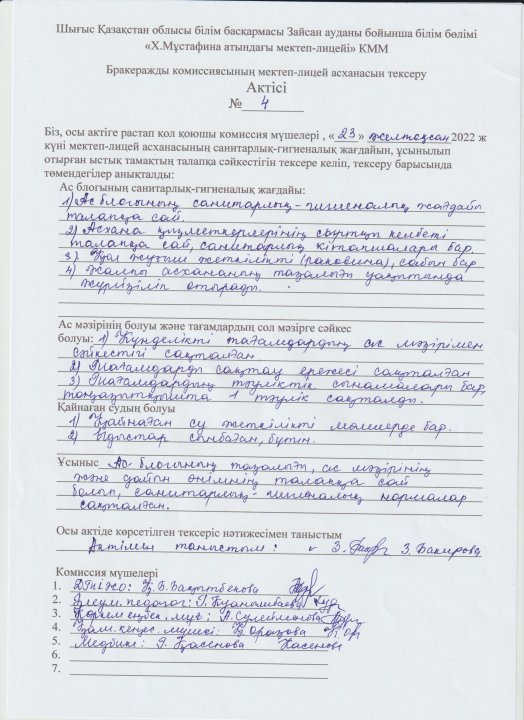 Шығыс Қазақстан облысы білім басқармасы Зайсан ауданы бойынша білім бөлімі
«Х.Мұстафина атындағы мектеп-лицейі» КММ
Бракеражды комиссиясының мектеп-лицей асханасын тексеру
Актісі
№ 4
Біз, осы актіге растап қол қоюшы комиссия мүшелері , « 23 » желтоқсан 2022 ж
күні мектеп-лицей асханасының санитарлық-гигиеналық жағдайын, ұсынылып
отырған ыстық тамақтың талапқа сәйкестігін тексере келіп, тексеру барысында
төмендегілер анықталды:
Ас блогының санитарлық-гигиеналық жағдайы:
1) Ас блогының санитарлық-гигиеналық жағдайы
талапқа сай.
2) Асхана қызметкерлерінің сыртқы келбеті
талапқа сай, санитарлық кітапшалары бар.
3) Қол жуғыш жеткілікті (раковина), сабын бар
4) Жалпы асхананың тазалығы уақытында
жүргізіліп отырады.
Ас мәзірінің болуы және тағамдардың сол мәзірге сәйкес
болуы: 1) Күнделікті тағамдардың ас мәзірімен
сәйкестігі сақталған
2) Тағамдарды сақтау ережесі сақталған
3) Тағамдардың тәуліктік сынамалары бар,
тоңазытқышта 1 тәулік сақталды.
Қайнаған судың болуы
1) Қайнаған су жеткілікті мөлшерде бар.
2) Ыдыстар сынбаған, бүтін.
Ұсыныс Ас блогының тазалығы, ас мәзірінің
және дайын өнімнің талапқа сай
болып, санитарлық-гигиеналық нормалар
сақталған.
Осы актіде көрсетілген тексеріс нәтижесімен таныстым
Актімен таныстым: З. Бакирова
Комиссия мүшелері
1. ДТІЖО: Қ.Б. Бақытбекова
2. Әлеум.педагог: Г. Қуанышбаева
3. Көркем еңбек.мұғ: А. Сулейменова
4. Қам.кеңес.мүшесі: Қ. Оразова
5. Медбике: Г. Қасенова Касенов
6.
7.